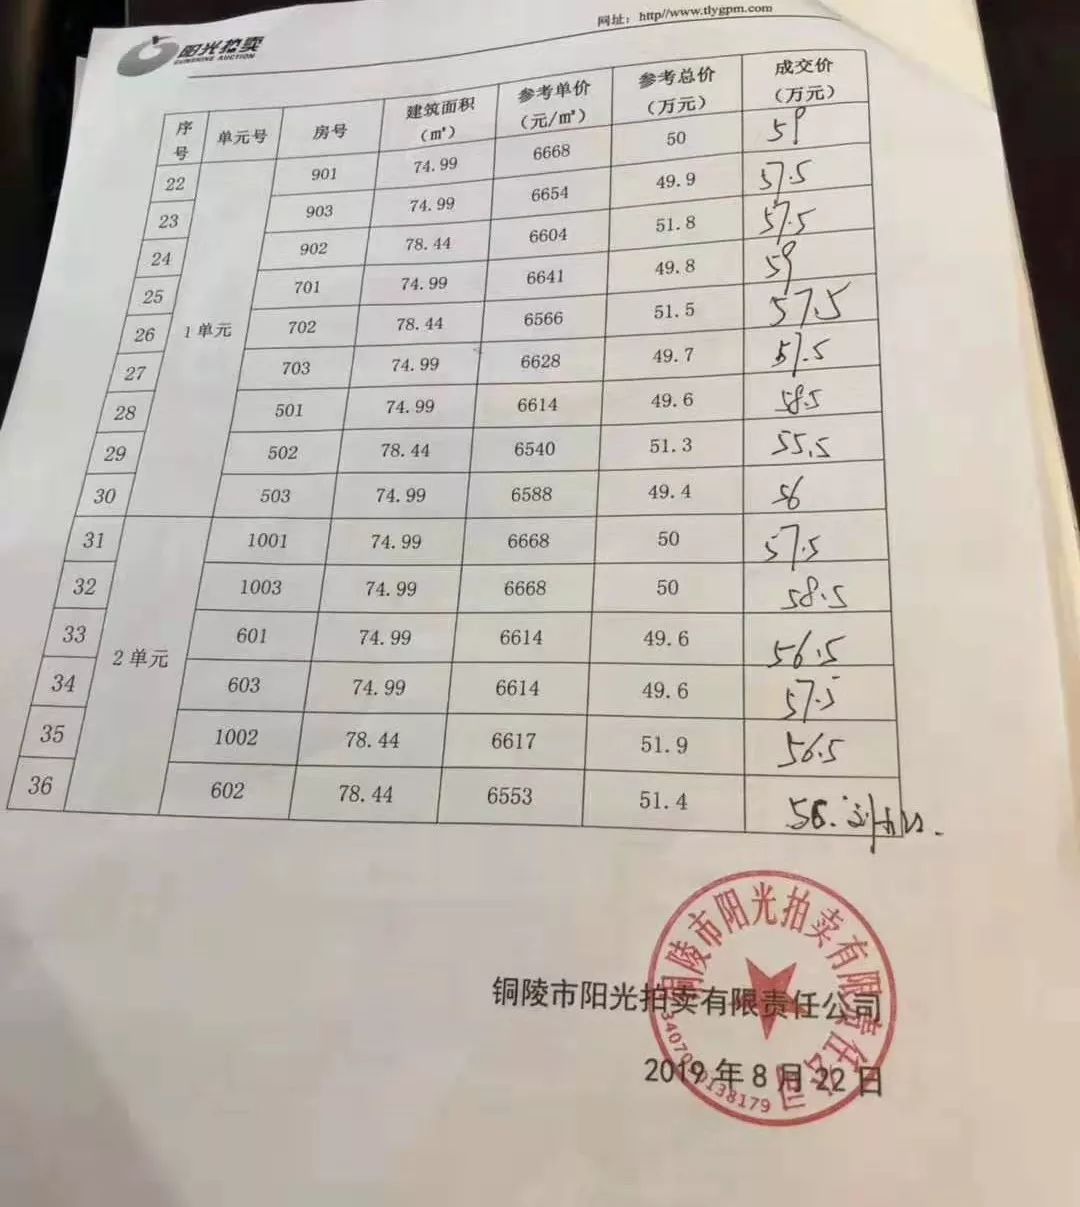 阳光拍卖
SUNSHINE AUCTION
网址：http//www.tlygpm.com
序号 单元号 房号 建筑面积（㎡） 参考单价（元/㎡） 参考总价（万元） 成交价（万元）
22 1单元 901 74.99 6668 50 59
23 903 74.99 6654 49.9 57.5
24 902 78.44 6604 51.8 57.5
25 701 74.99 6641 49.8 59
26 702 78.44 6566 51.5 57.5
27 703 74.99 6628 49.7 57.5
28 501 74.99 6614 49.6 58.5
29 502 78.44 6540 51.3 55.5
30 503 74.99 6588 49.4 56
31 2单元 1001 74.99 6668 50 57.5
32 1003 74.99 6668 50 58.5
33 601 74.99 6614 49.6 56.5
34 603 74.99 6614 49.6 57.5
35 1002 78.44 6617 51.9 56.5
36 602 78.44 6553 51.4 56.
铜陵市阳光拍卖有限责任公司
2019年8月22日
铜陵市阳光拍卖有限责任公司